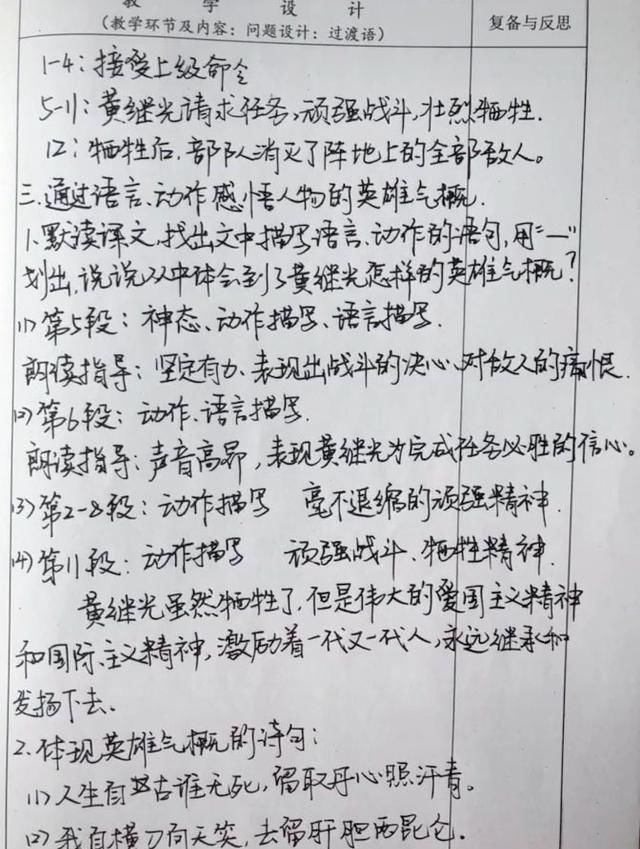 教 学 设 计
(教学环节及内容：问题设计：过渡语)
复备与反思
1-4：接受上级命令
5-11：黄继光请求任务，顽强战斗，壮烈牺牲.
12：牺牲后，部队消灭了阵地上的全部敌人。
三.通过语言、动作感悟人物的英雄气概.
1.默读课文，找出文中描写语言、动作的语句，用"—"
划出，说说从中体会到了黄继光怎样的英雄气概？
(1)第5段：神态、动作描写、语言描写.
朗读指导：坚定有力、表现出战斗的决心、对敌人的痛恨.
(2)第6段：动作、语言描写.
朗读指导：声音高昂，表现黄继光为完成任务必胜的信心。
(3)第2-8段：动作描写 毫不退缩的顽强精神.
(4)第11段：动作描写 顽强战斗、牺牲精神.
黄继光虽然牺牲了，但是伟大的爱国主义精神
和国际主义精神，激励着一代又一代人，永远继承和
发扬下去.
2.体现英雄气概的诗句：
(1)人生自古谁无死，留取丹心照汗青。
(2)我自横刀向天笑，去留肝胆两昆仑.